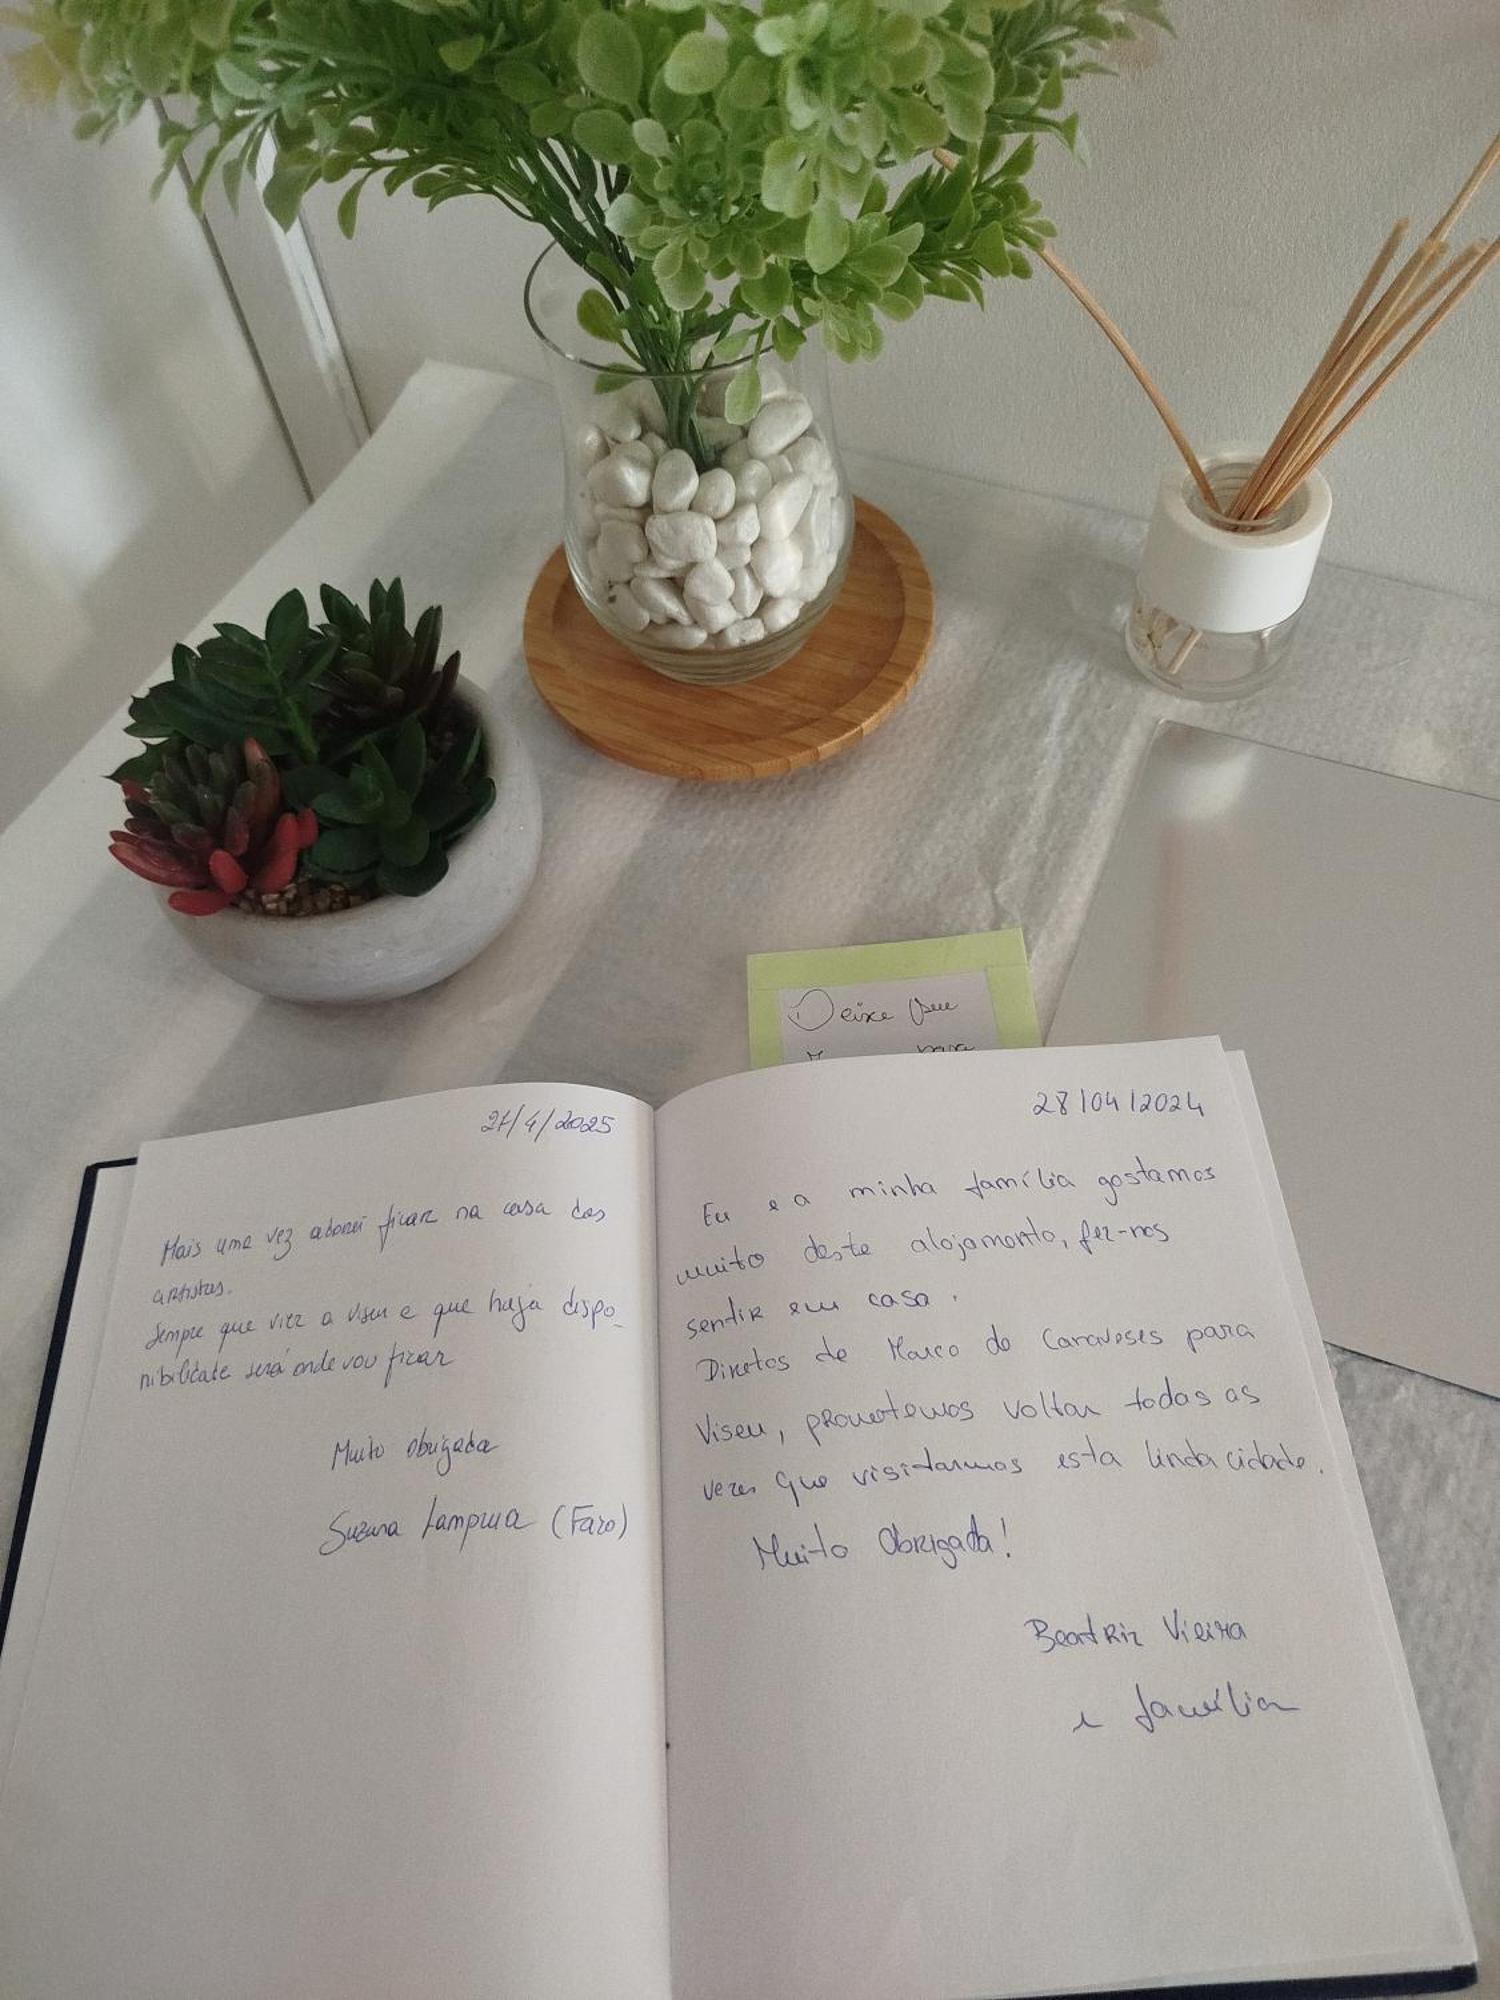 Deixe seu
para
27/4/2025
Mais uma vez adorei ficar na casa dos
artistas.
Sempre que vier a Viseu e que haja dispo_
nibilidade será onde vou ficar
Muito obrigada
Suzana (Faro)
28/04/2024
Eu e a minha família gostamos
muito deste alojamento, fez-nos
sentir em casa.
Diretos de Marco de Canaveses para
Viseu, prometemos voltar todas as
vezes que visitarmos esta linda cidade.
Muito Obrigada!
Beatriz Vieira
e família